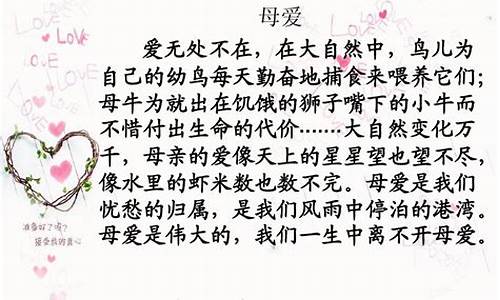 母爱
爱无处不在，在大自然中，鸟儿为
自己的幼鸟每天勤奋地捕食来喂养它们；
母牛为就出在饥饿的狮子嘴下的小牛而
不惜付出生命的代价·······大自然变化万
千，母亲的爱像天上的星星望也望不尽，
像水里的虾米数也数不完。母爱是我们
忧愁的归属，是我们风雨中停泊的港湾。
母爱是伟大的，我们一生中离不开母爱。
LOVE
LOVE
LOVE
准备好了吗？
接受我的真心